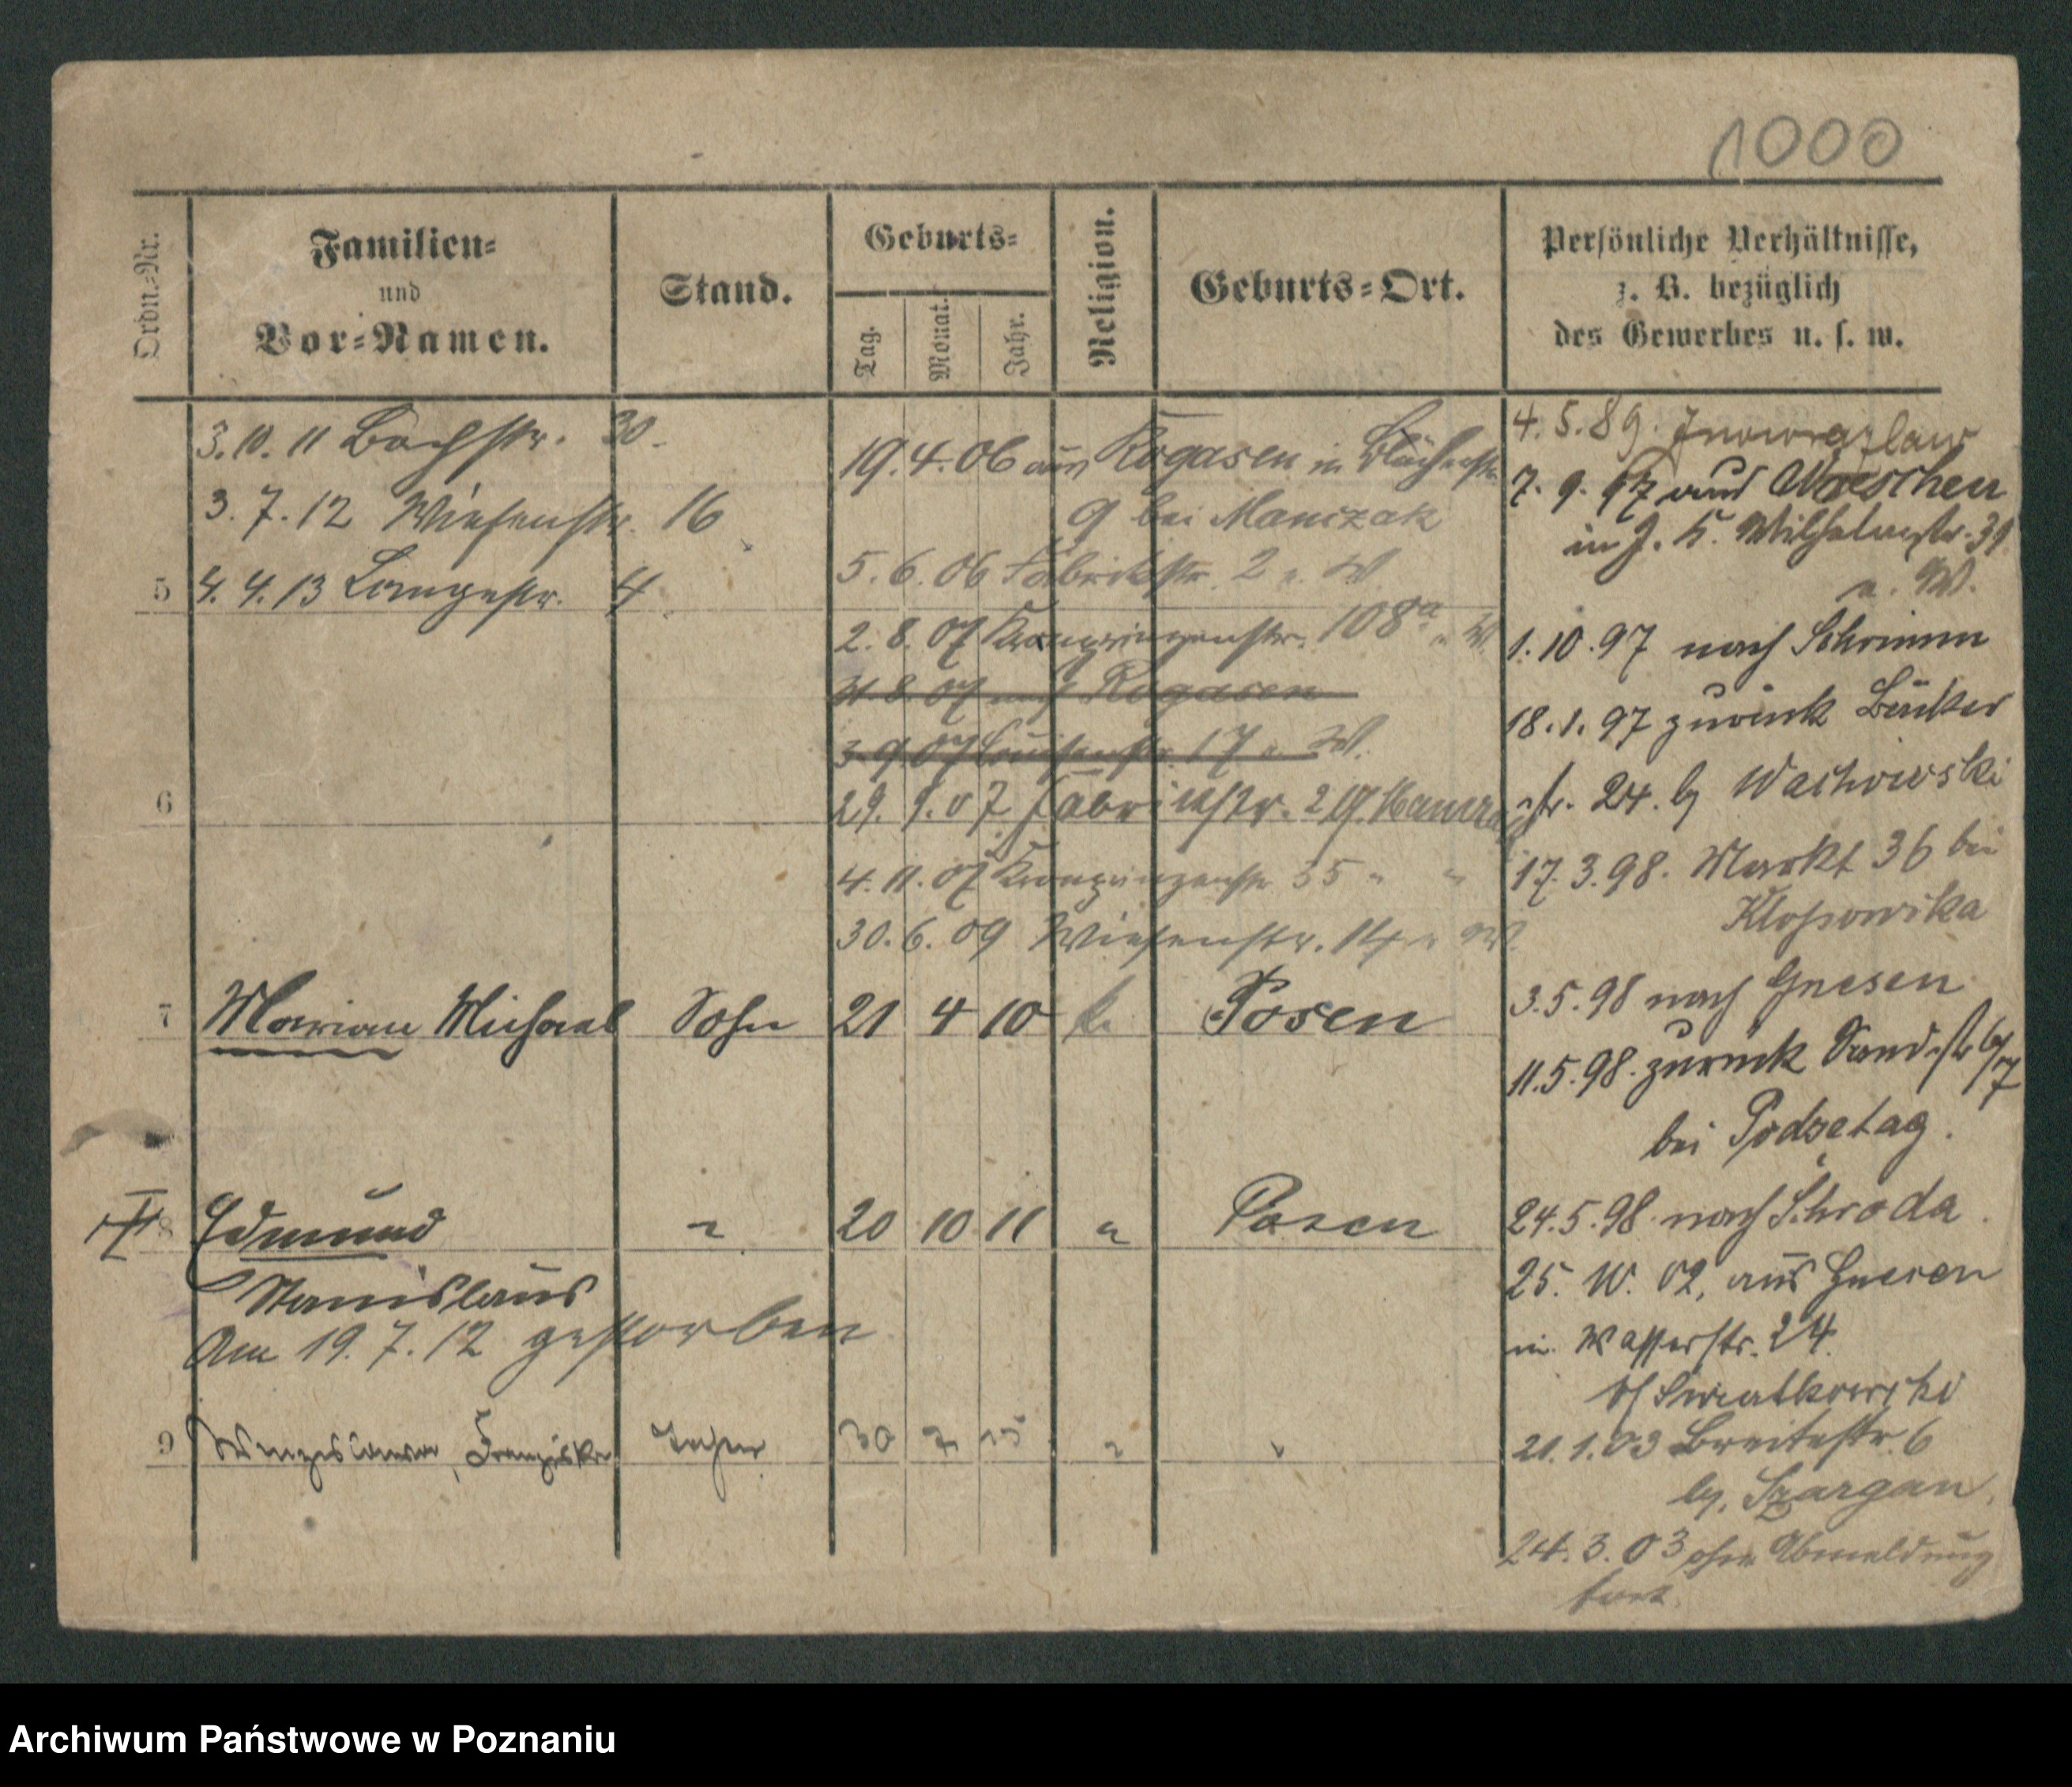 1000
Ordn.-Nr.
Familien-
und
Vor-Namen.
Stand.
Geburts-
Tag.
Monat.
Jahr.
Religion.
Geburts-Ort.
Persönliche Verhältnisse,
z. B. bezüglich
des Gewerbes u. s. w.
3.10.11 Bachstr. 30.
3.7.12 Wiesenstr. 16
5 4.4.13 Langestr. 4
19.4.06 aus Rogasen in
9 bei Manczak
5.6.06 Fabrikstr. 2 " W
2.8.07 Kronprinzenstr. 108a " W
8.07 nach Rogasen
3.9.07 Louisenstr. 17 " W.
6
29.9.07 Fabrikstr. 29
4.11.07 Kronprinzenstr 35 " "
30.6.09 Wiesenstr. 14 " W.
7 Marian Michael Sohn 21 4 10 k. Posen
8 Edmund " 20 10 11 " Posen
Stanislaus
Am 19.7.12 gestorben
9 Franziska 30
4.5.89. Inowrazlaw
7.9.97 aus Wreschen
in J. K. Wilhelmstr. 39
u. W.
1.10.97 nach Schrimm
18.1.97 zurück Bäcker
str. 24. b/ Wachowski
17.3.98. Markt 36 bei
3.5.98 nach Gnesen
11.5.98. zurück Sandstr 6/7
bei Podsetag.
24.5.98. nach Schroda.
25. 10. 02, aus Gnesen
in Wasserstr. 24.
b/ Swiatkowski
21.1.03 Breitestr. 6
by. Szargan.
24.3.03 ohne Abmeldung
fort.
Archiwum Państwowe w Poznaniu